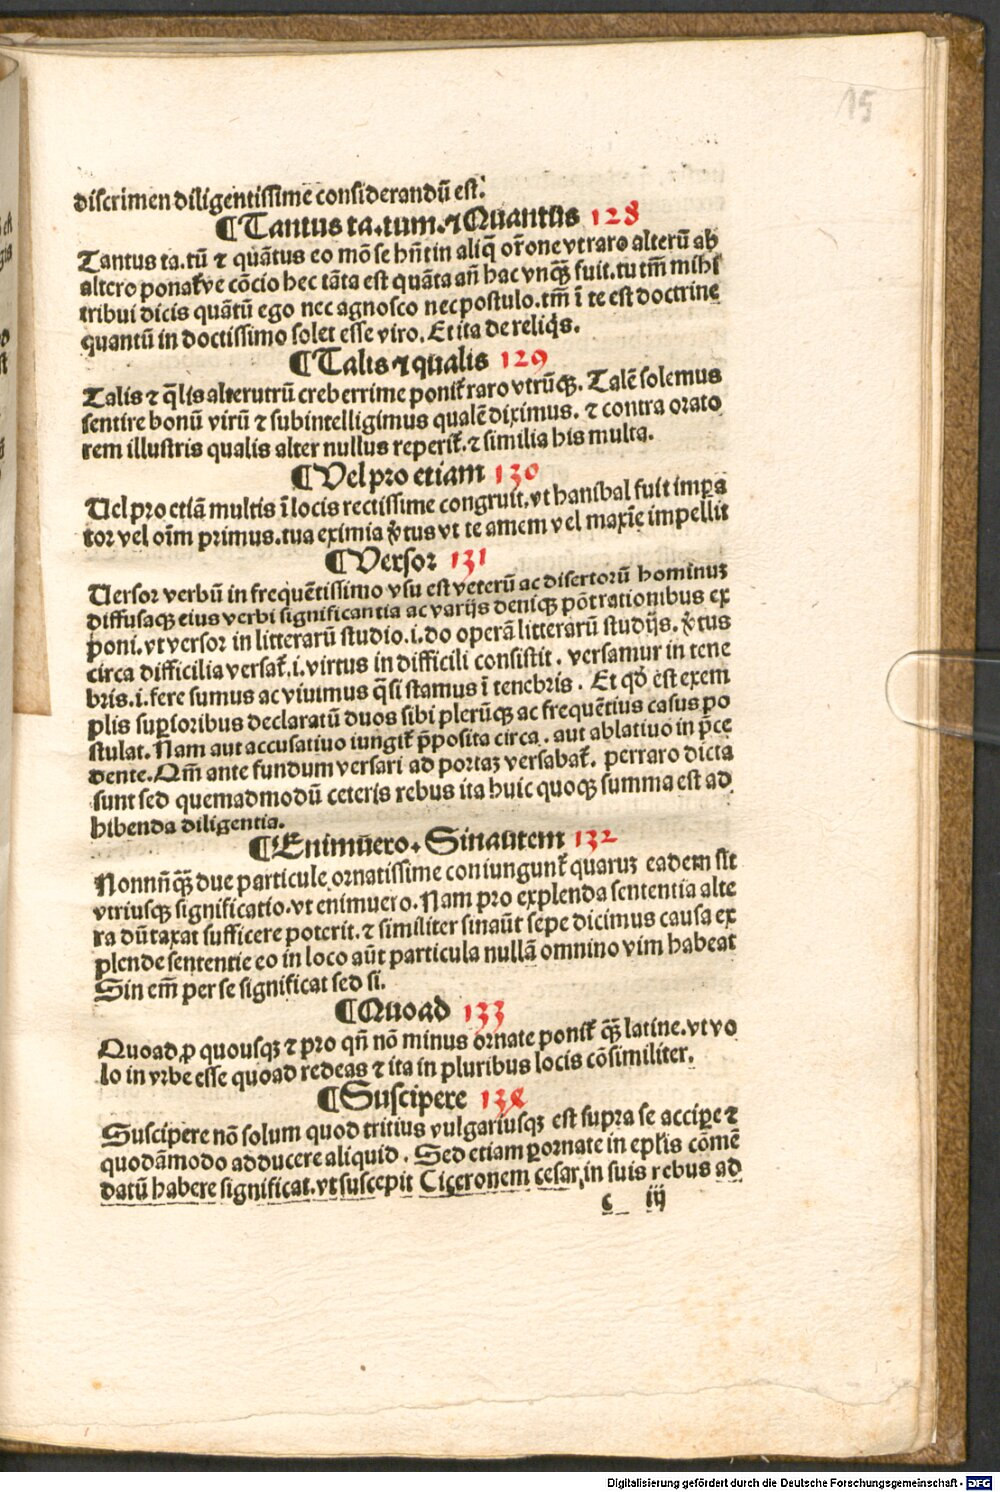 15
discrimen diligentissime considerandū est.
¶Tantus ta.tum.⁊ Quantus 128
Tantus ta.tū ⁊ quātus eo mō se hñt in aliq̄ oꝛ̄one vt raro alterū ab
altero ponat᷑ ve cōcio hec tāta est quāta añ hac vnqꝫ̄ fuit.tu tm̄ mihi
tribui dicis quātū ego nec agnosco nec postulo.tm̄ ī te est doctrine
quantū in doctissimo solet esse viro. Et ita de reliq̇s.
¶Talis ⁊ qualis 129
Talis ⁊ q̄lis alterutrū creberrime ponit᷑ raro vtrūqꝫ. Talē solemus
sentire bonū virū ⁊ subintelligimus qualē diximus. ⁊ contra orato
rem illustris qualis alter nullus reperit᷑.⁊ similia his multa.
¶Vel pro etiam 130
Uel pro etiā multis ī locis rectissime congruit.vt hanibal fuit imꝑa
tor vel oīm primus.tua eximia v̓tus vt te amem vel maxīe impellit
¶Versor 131
Uersor verbū in frequētissimo vsu est veterū ac disertorū hominuꝫ
diffusaqꝫ eius verbi significantia ac varijs deniqꝫ pōt rationibus ex
poni.vt versor in litterarū studio.i.do operā litterarū studijs.v̓tus
circa difficilia versat᷑.i.virtus in difficili consistit. versamur in tene
bris.i.fere sumus ac viuimus q̄si stamus ī tenebris. Et qd̓ est exem
plis suꝑioribus declaratū duos sibi plerūqꝫ ac frequētius casus po
stulat. Nam aut accusatiuo iungit᷑ p̄posita circa. aut ablatiuo in p̄ce
dente. Qm̄ ante fundum versari ad portaꝫ versabat᷑. perraro dicta
sunt sed quemadmodū ceteris rebus ita huic quoqꝫ summa est ad
hibenda diligentia.
¶Enimūero. Sinautem 132
Nonnūqꝫ̄ due particule ornatissime coniungunt᷑ quaruꝫ eadem sit
vtriusqꝫ significatio.vt enimuero. Nam pro explenda sententia alte
ra dūtaxat sufficere poterit.⁊ similiter sinaūt sepe dicimus causa ex
plende sententie eo in loco aūt particula nullā omnino vim habeat
Sin em̄ per se significat sed si.
¶Quoad 133
Quoad ꝓ quousqꝫ ⁊ pro qñ nō minus ornate ponit᷑ qꝫ̄ latine.vt vo
lo in vrbe esse quoad redeas ⁊ ita in pluribus locis cōsimiliter.
¶Suscipere 134
Suscipere nō solum quod tritius vulgariusqꝫ est supra se acciꝑe ⁊
quodāmodo adducere aliquid. Sed etiam ꝑornate in epl̄is cōmē
datū habere significat.vt suscepit Ciceronem cesar in suis rebus ad
c iij
Digitalisierung gefördert durch die Deutsche Forschungsgemeinschaft - DFG